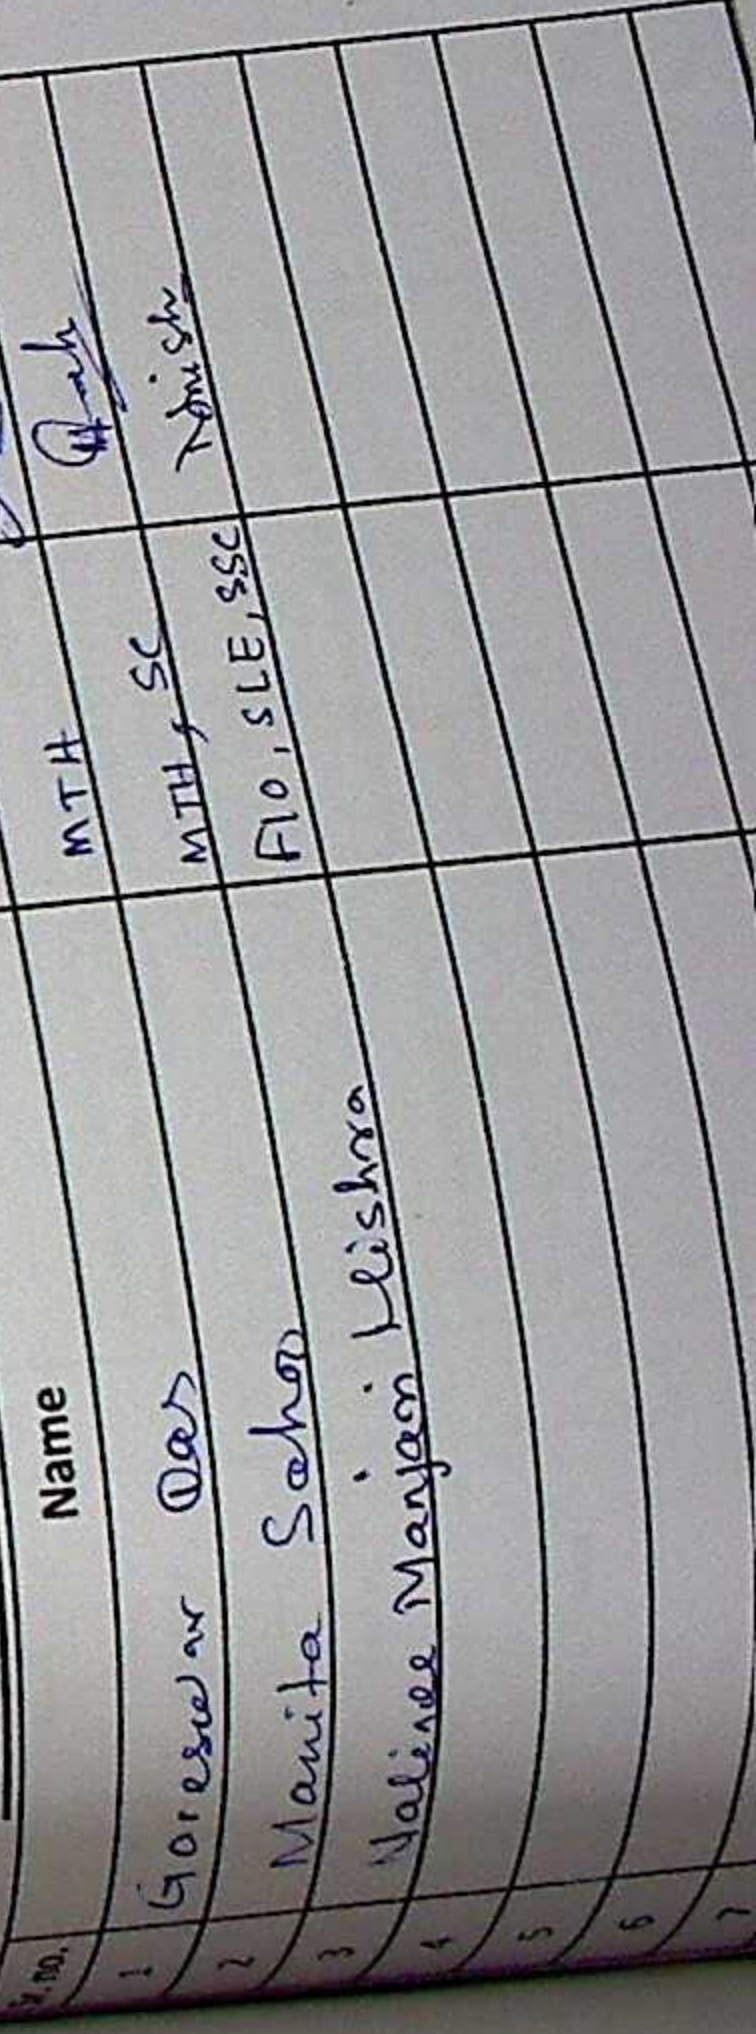 Name
1 Goreswar Das MTH
2 Manita Sahoo MTH, SC
3 Nalinee Manjari Mishra F10, SLE, SSC
4
5
6
7